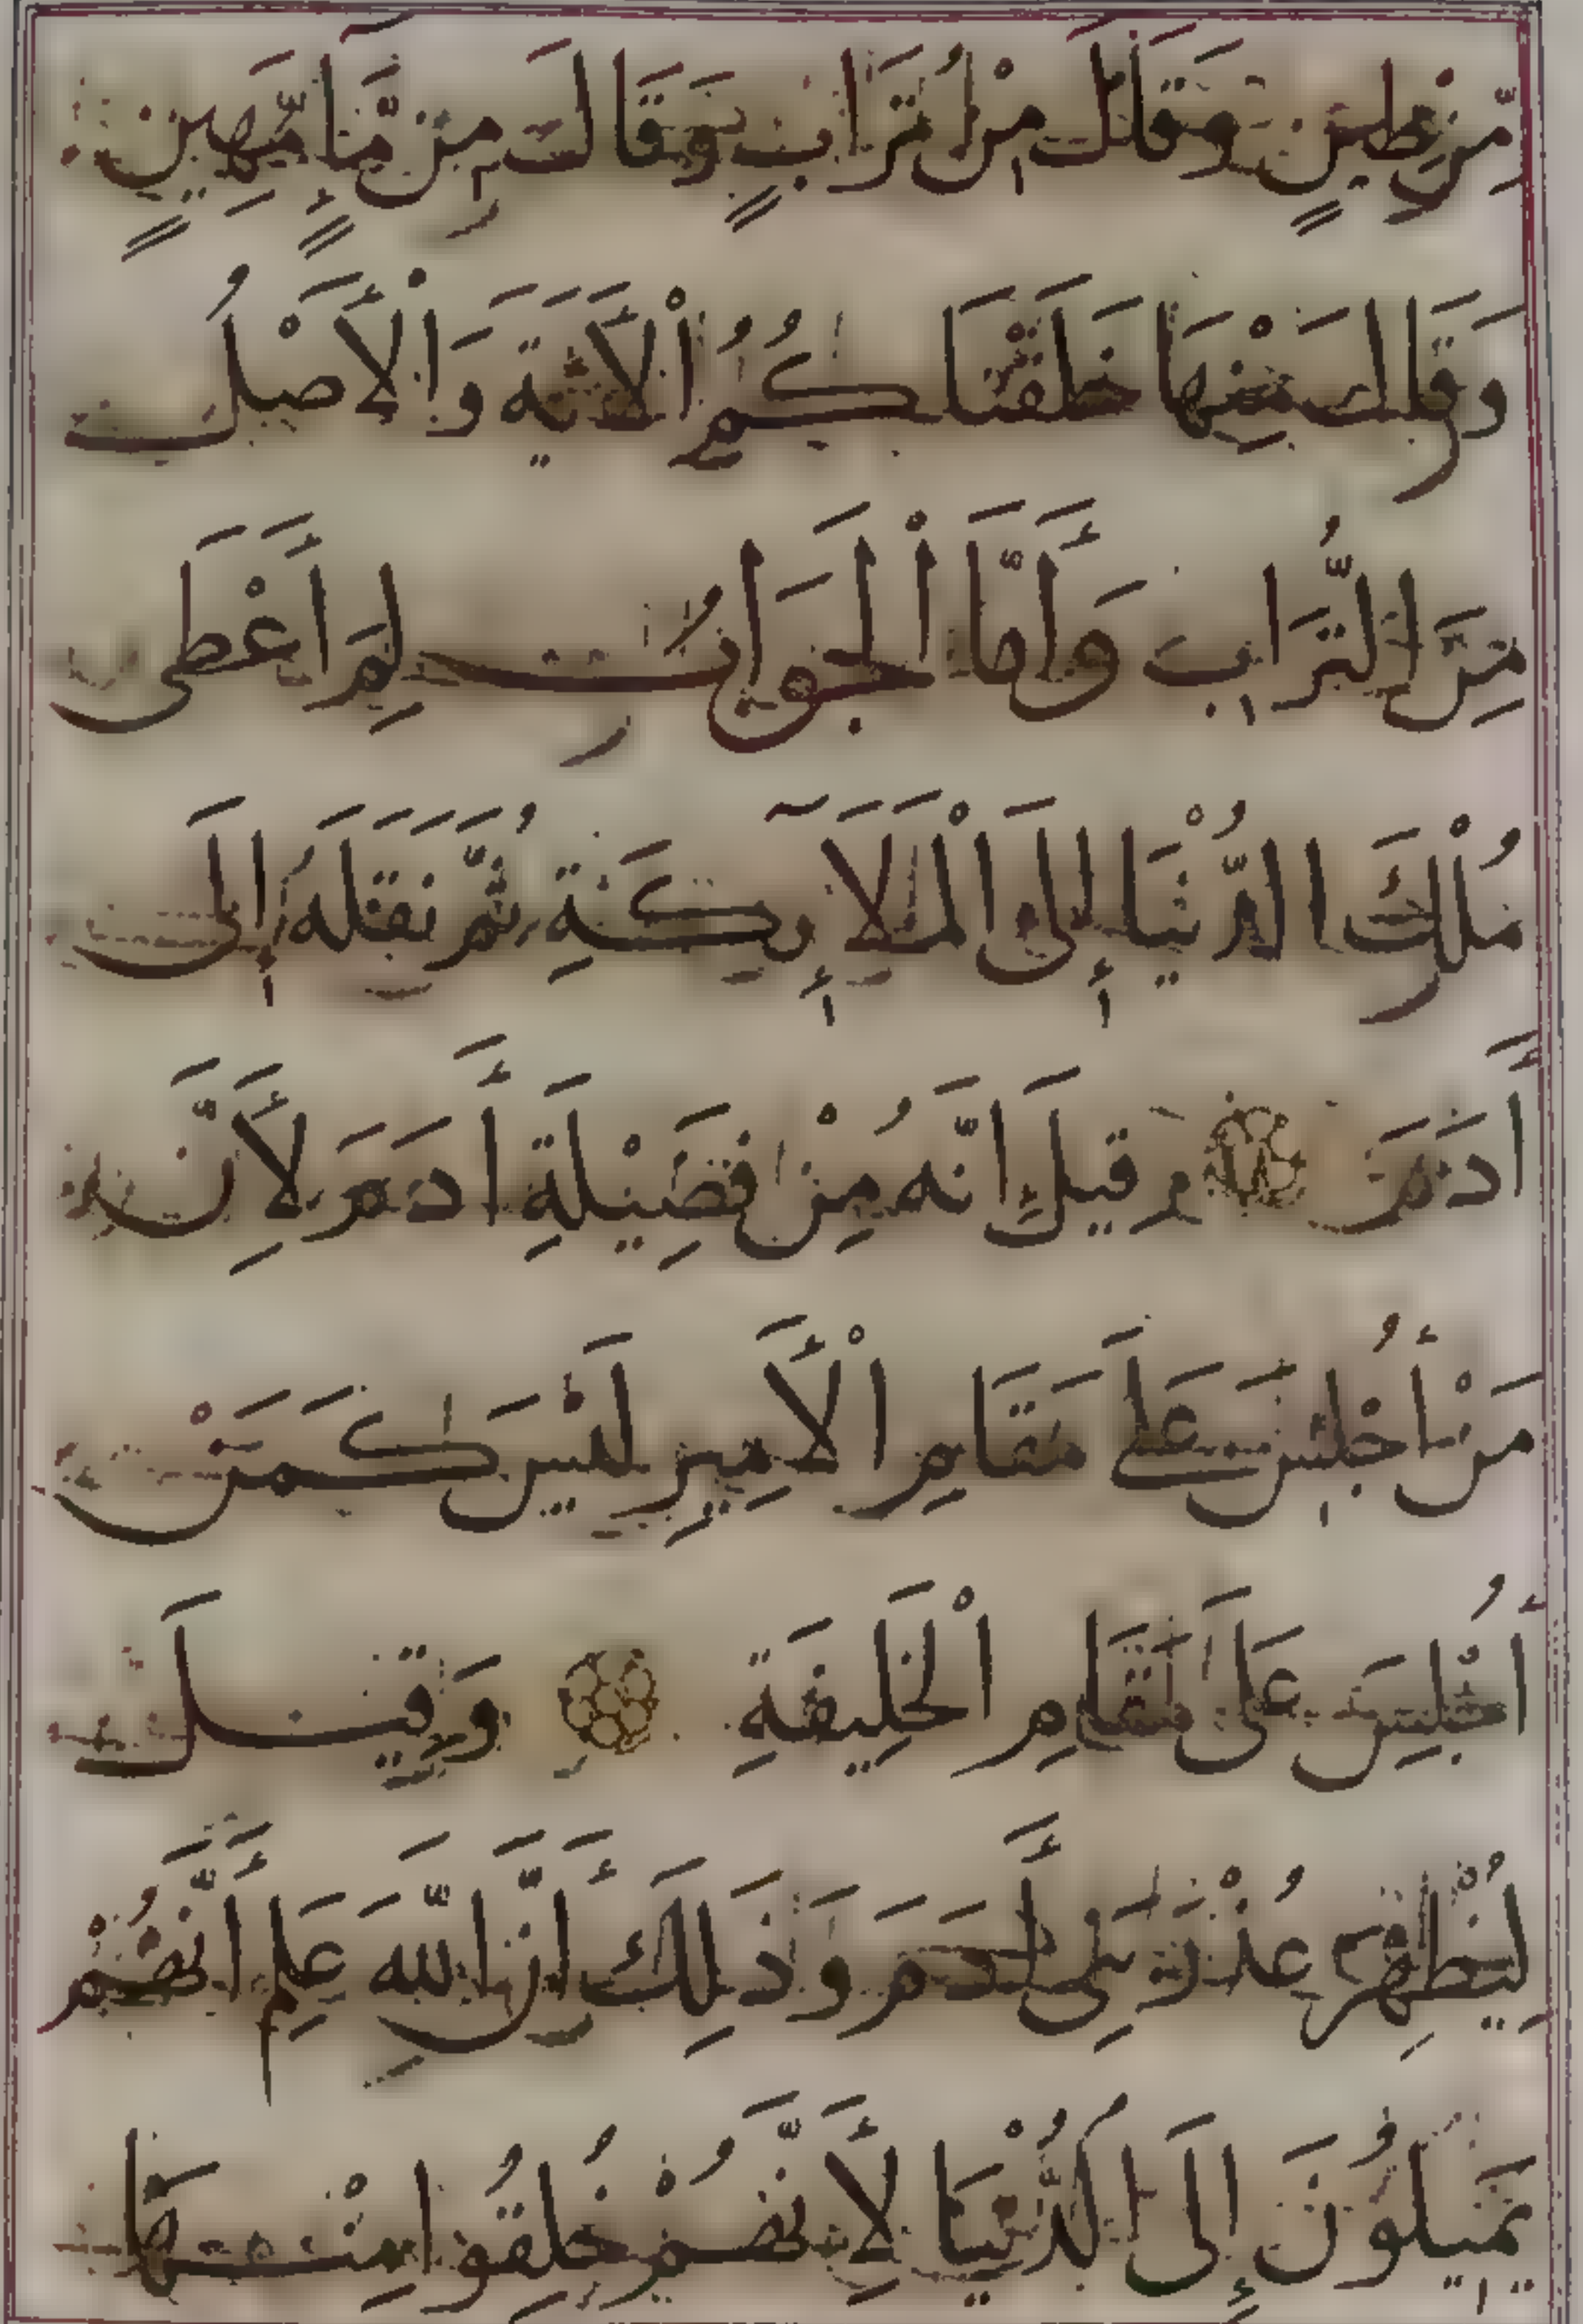 مِّنْ طِيْنٍ وَقَالَ مِنْ تُرَابٍ وَقَالَ مِنْ مَّآءٍ مَّهِيْنٍ
وَقَالَ مِنْهَا خَلَقْنَاكُمُ الْأَيَةَ وَالْأَصْلُ
مِنَ التُّرَابِ وَأَمَّا الْجَوَابُ لِمَ أَعْطَى
مُلْكَ الدُّنْيَا إِلَى الْمَلَآئِكَةِ ثُمَّ نَقَلَهُ إِلَى
أَدَمَ وَقِيلَ إِنَّهُ مِنْ فَضِيْلَةِ أَدَمَ لِأَنَّ
مَنْ أُجْلِسَ عَلَى مَقَامِ الْأَمِيْرِ لَيْسَ كَمَنْ
أُجْلِسَ عَلَى مَقَامِ الْخَلِيفَةِ وَقِيْلَ
لِيُظْهِرَ عُذْرَ بَنِى أَدَمَ وَذَلِكَ أَنَّ اللّٰهَ عَلِمَ أَنَّهُمْ
يَمِيْلُوْنَ إِلَى الدُّنْيَا لِأَنَّهُمْ خُلِقُوا مِنْهَا